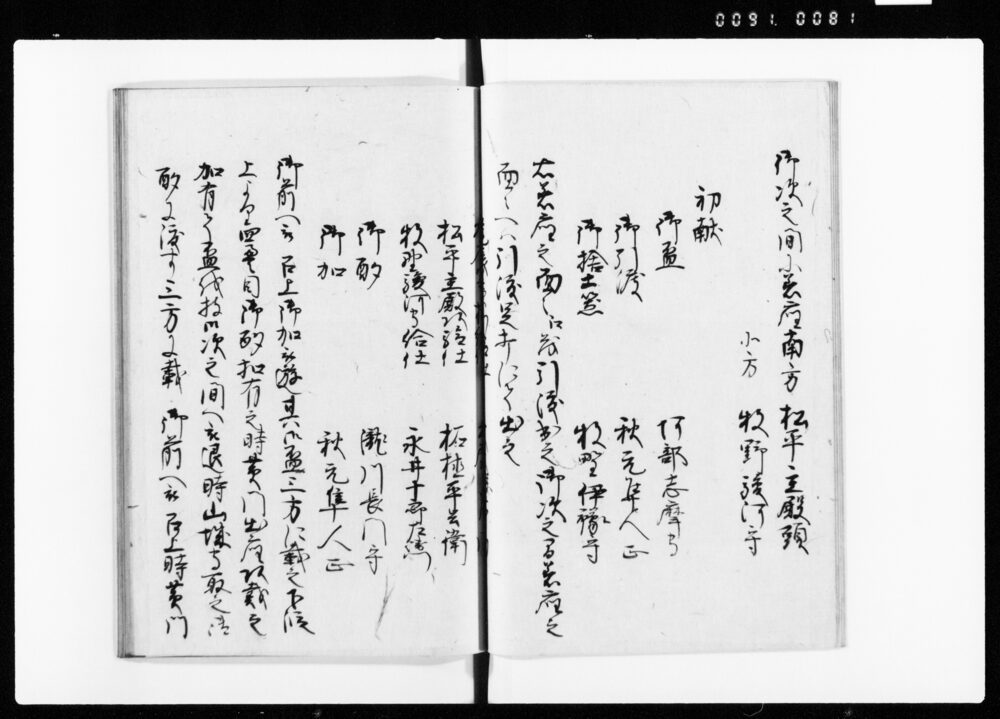 0091.0081
御次之間ニ着座南方 松平主殿頭
北方 牧野駿河守
初献
御盃 阿部志摩守
御引渡 秋元隼人正
御捨土器 牧野伊豫守
右着座之面々江茂引渡出之御次之間着座之
面々へハ引渡足打ニて出之
松平主殿頭給仕 柘植平兵衛
牧野駿河守給仕 永井十郎左衛門
御酌 瀧川長門守
御加 秋元隼人正
御前へ被召上御加被遊其御盃三方ニ載之下段
上 御酌扣有之時黄門出座頂戴之
加有テ盃 御次之間へ被退時山城守取之
酌ニ渡ス三方ニ載 御前へ被召上時黄門